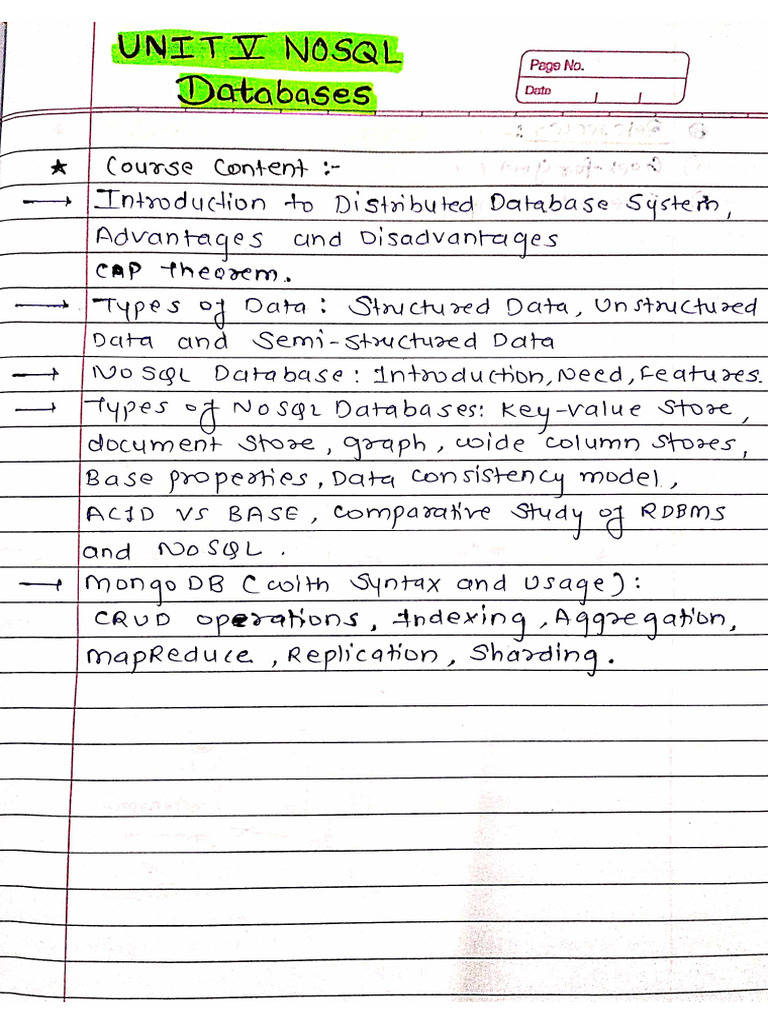 UNIT V NOSQL
Databases
Page No.
Date
★ Course Content :-
→ Introduction to Distributed Database System,
Advantages and Disadvantages
CAP theorem.
→ Types of Data: Structured Data, Unstructured
Data and Semi-structured Data
→ NoSQL Database: Introduction, Need, Features.
→ Types of NoSQL Databases: Key-value store,
document store, graph, wide column stores,
Base properties, Data consistency model,
ACID VS BASE, Comparative Study of RDBMS
and NoSQL.
→ MongoDB (with Syntax and Usage):
CRUD operations, Indexing, Aggregation,
MapReduce, Replication, Sharding.